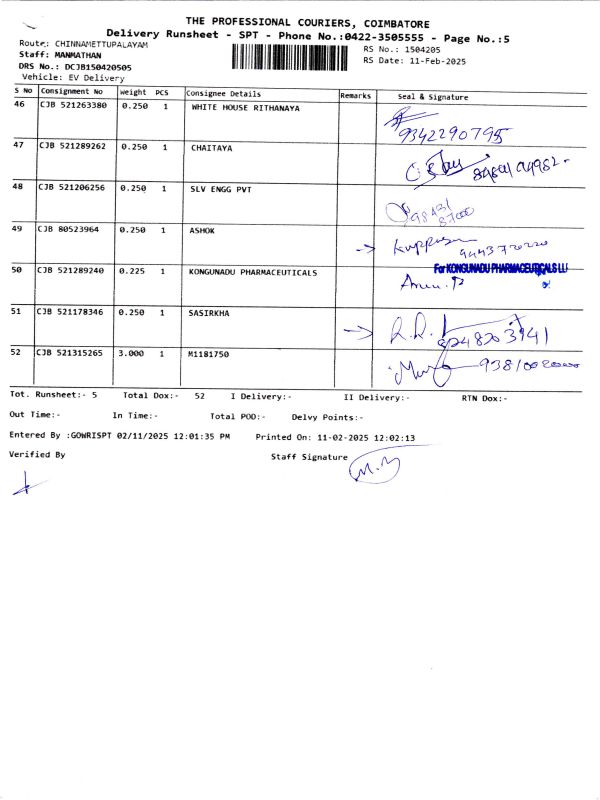 THE PROFESSIONAL COURIERS, COIMBATORE
Delivery Runsheet - SPT - Phone No.:0422-3505555 - Page No.:5
Route: CHINNAMETTUPALAYAM
RS No.: 1504205
Staff: MANMATHAN
RS Date: 11-Feb-2025
DRS No.: DCJB150420505
Vehicle: EV Delivery
S No Consignment No Weight PCS Consignee Details Remarks Seal & Signature
46 CJB 521263380 0.250 1 WHITE HOUSE RITHANAYA
9342290795
47 CJB 521289262 0.250 1 CHAITAYA
48 CJB 521206256 0.250 1 SLV ENGG PVT
98431
87000
49 CJB 80523964 0.250 1 ASHOK
50 CJB 521289240 0.225 1 KONGUNADU PHARMACEUTICALS
For KONGUNADU PHARMACEUTICALS LLP
51 CJB 521178346 0.250 1 SASIRKHA
52 CJB 521315265 3.000 1 M1181750
Tot. Runsheet:- 5 Total Dox:- 52 I Delivery:- II Delivery:- RTN Dox:-
Out Time:- In Time:- Total POD:- Delvy Points:-
Entered By :GOWRISPT 02/11/2025 12:01:35 PM Printed On: 11-02-2025 12:02:13
Verified By Staff Signature